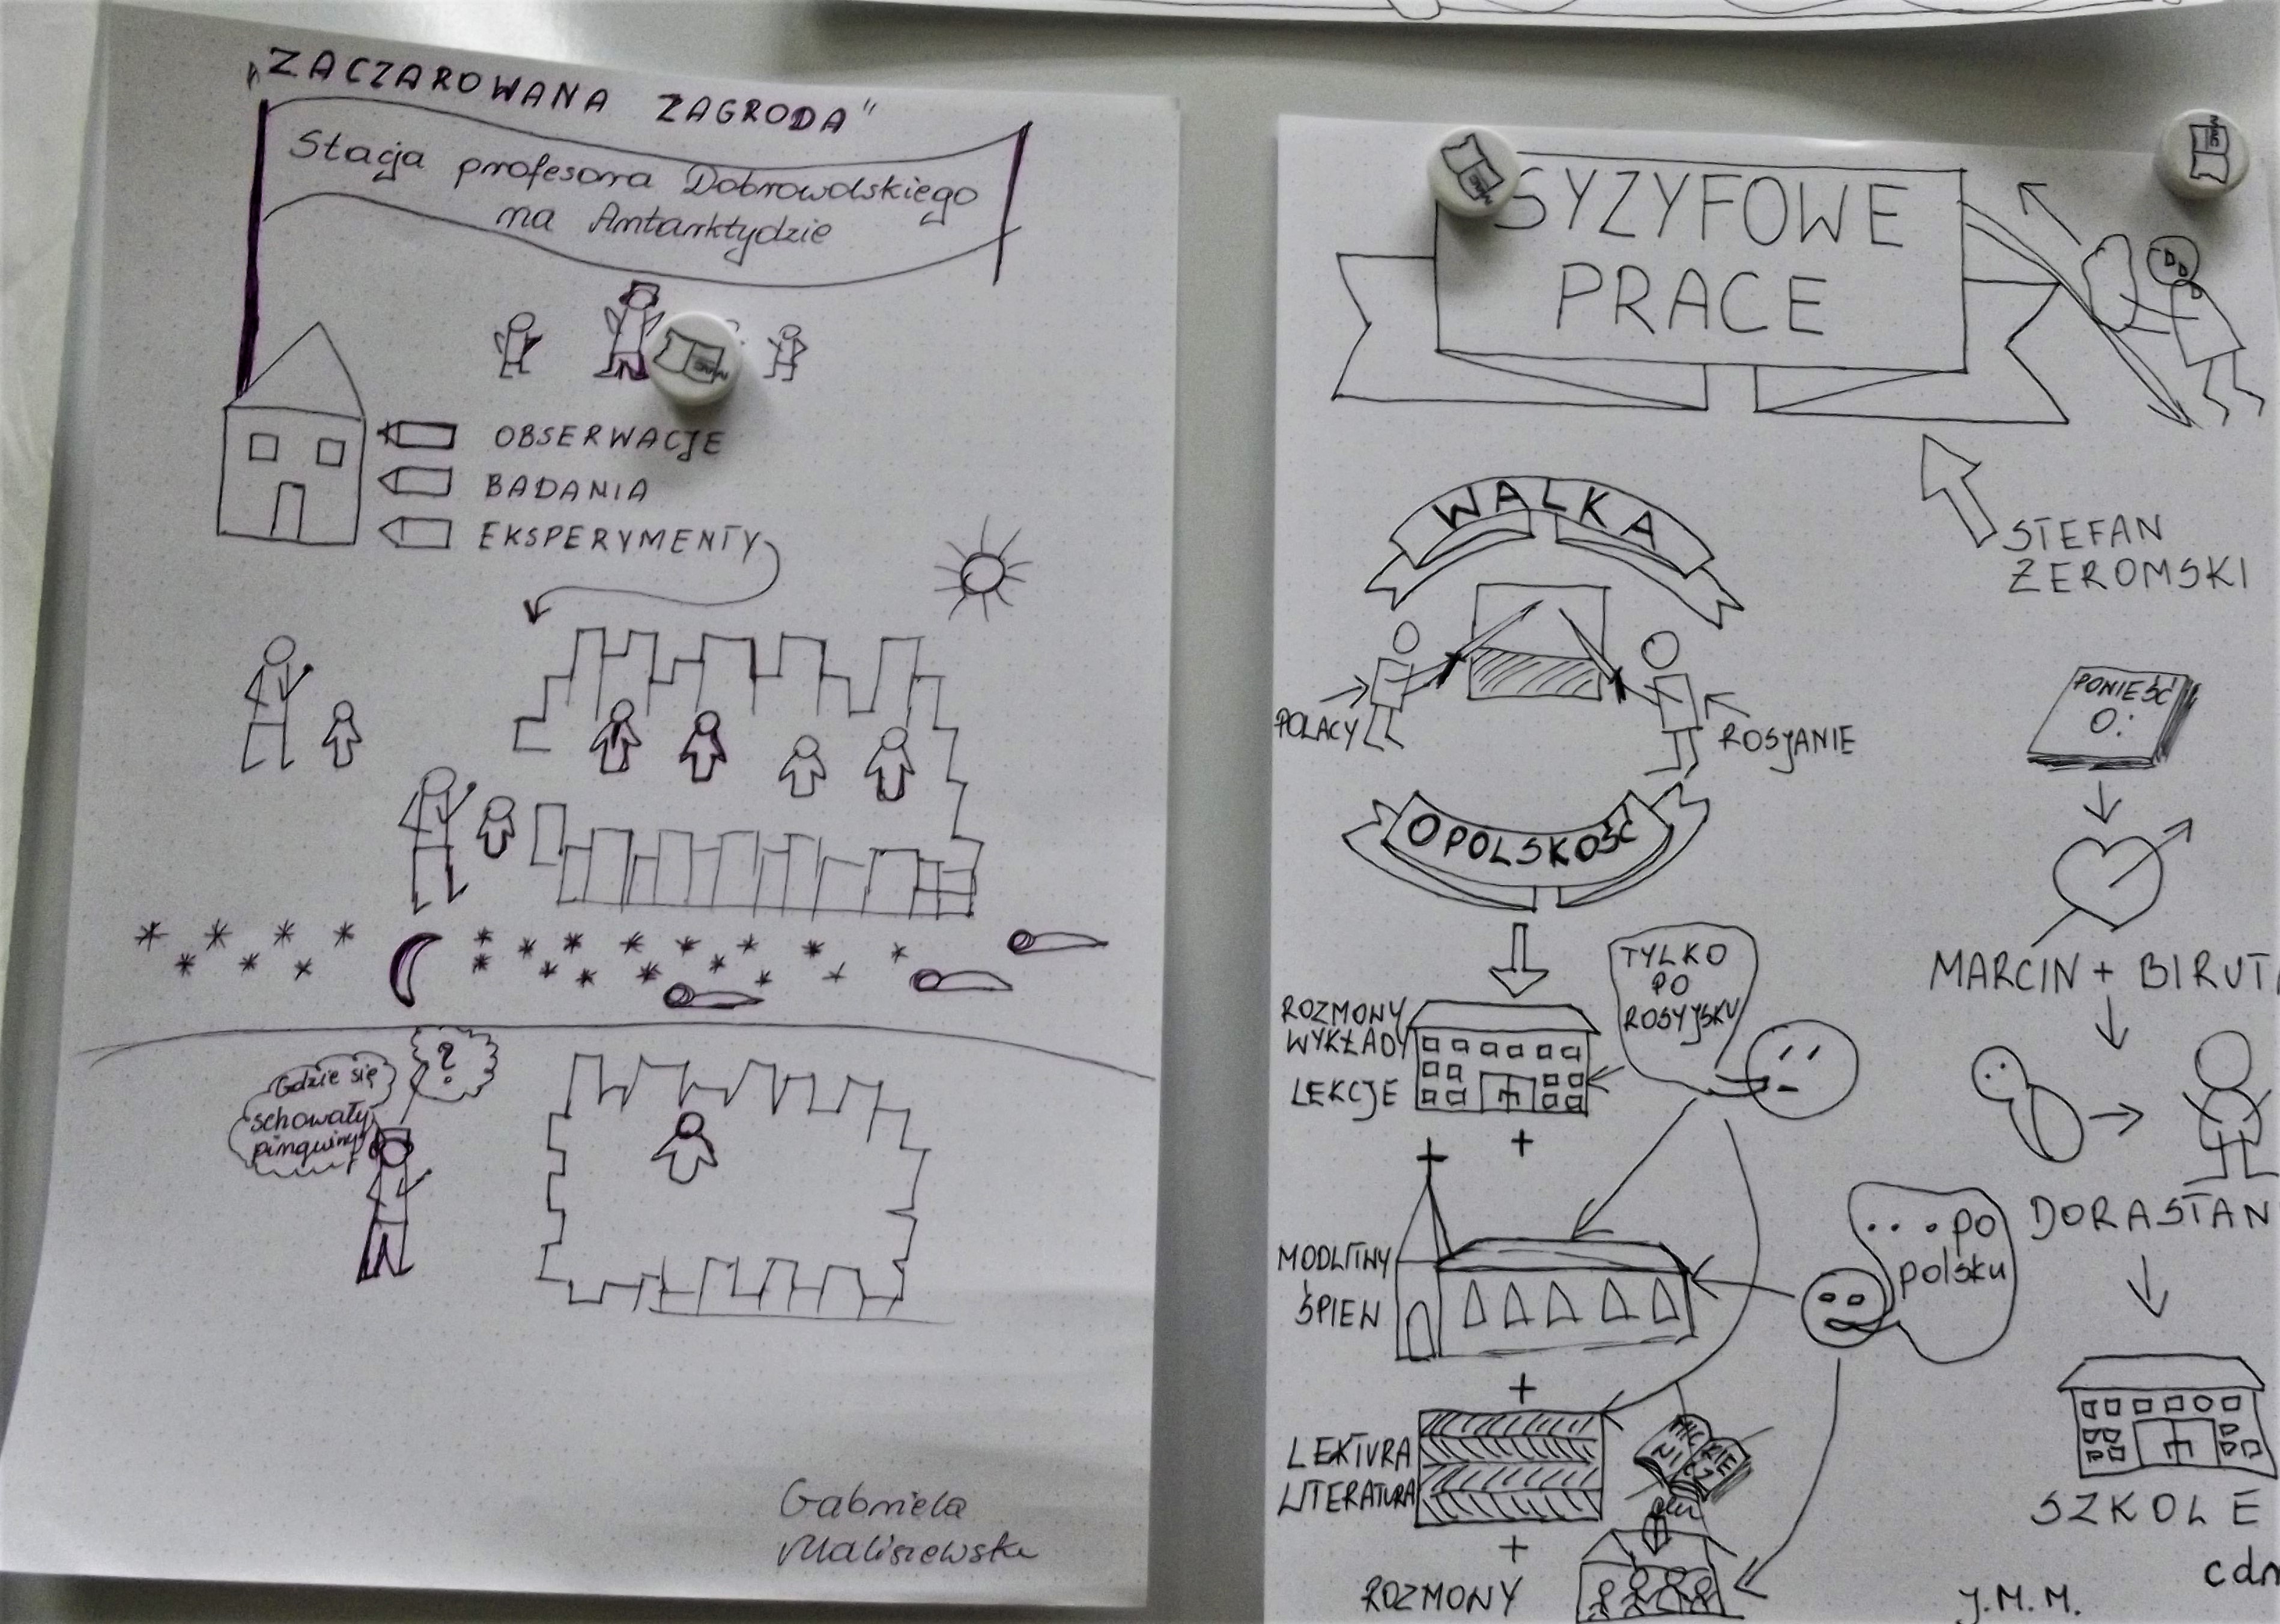 „ZACZAROWANA ZAGRODA"
Stacja profesora Dobrowolskiego
na Antarktydzie
OBSERWACJE
BADANIA
EKSPERYMENTY
?
Gdzie się
schowały
pingwiny
Gabriela
Maliszewska
SYZYFOWE
PRACE
STEFAN
ŻEROMSKI
WALKA
POLACY
ROSJANIE
O POLSKOŚĆ
TYLKO
PO
ROSYJSKU
ROZMOWY
WYKŁADY
LEKCJE
MODLITWY
ŚPIEW
...po
polsku
LEKTURA
LITERATURA
MICKIE
WICZ
ROZMOWY
POWIEŚĆ
O:
MARCIN + BIRUTA
DORASTAN
SZKOLE
cdn
J.M.M.